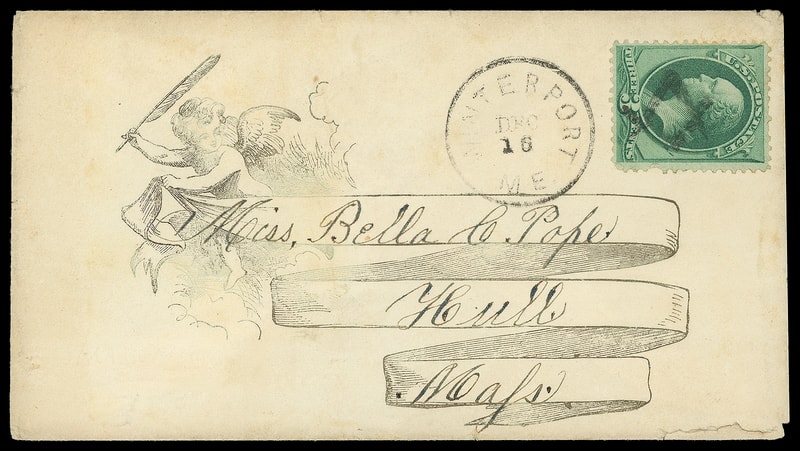 WINTERPORT
DEC
16
ME
U.S. POSTAGE
Miss. Bella C. Pope.
Hull
Mass.